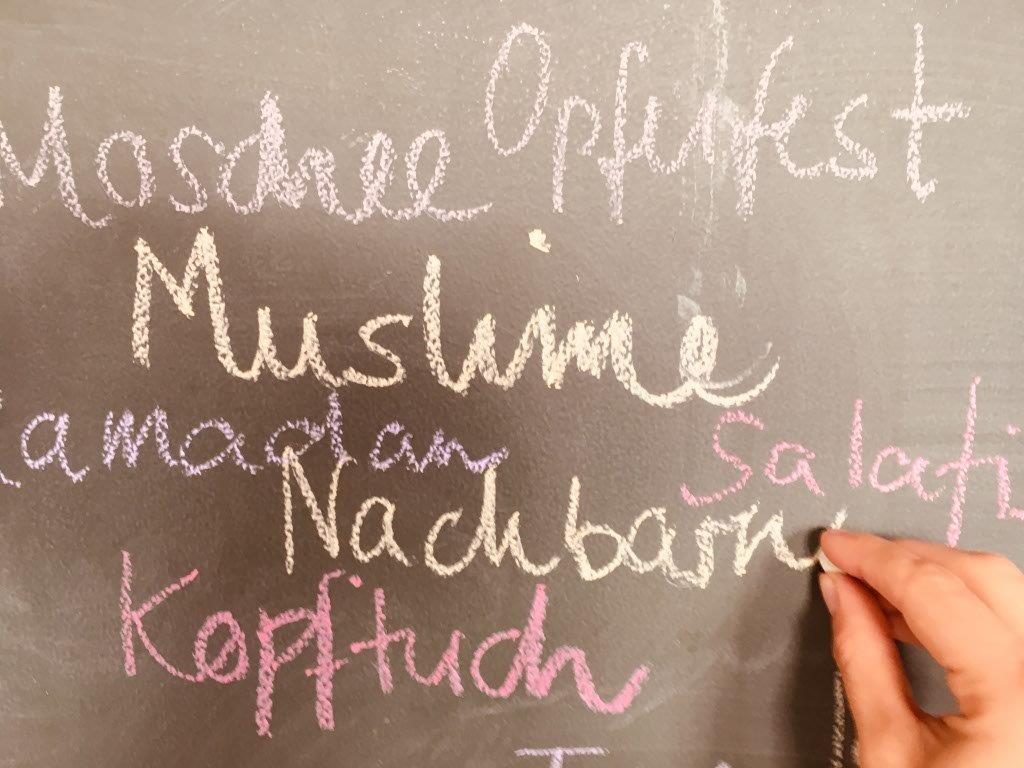 Moschee Opferfest
Muslime
Ramadan Salafi
Nachbarn
Kopftuch